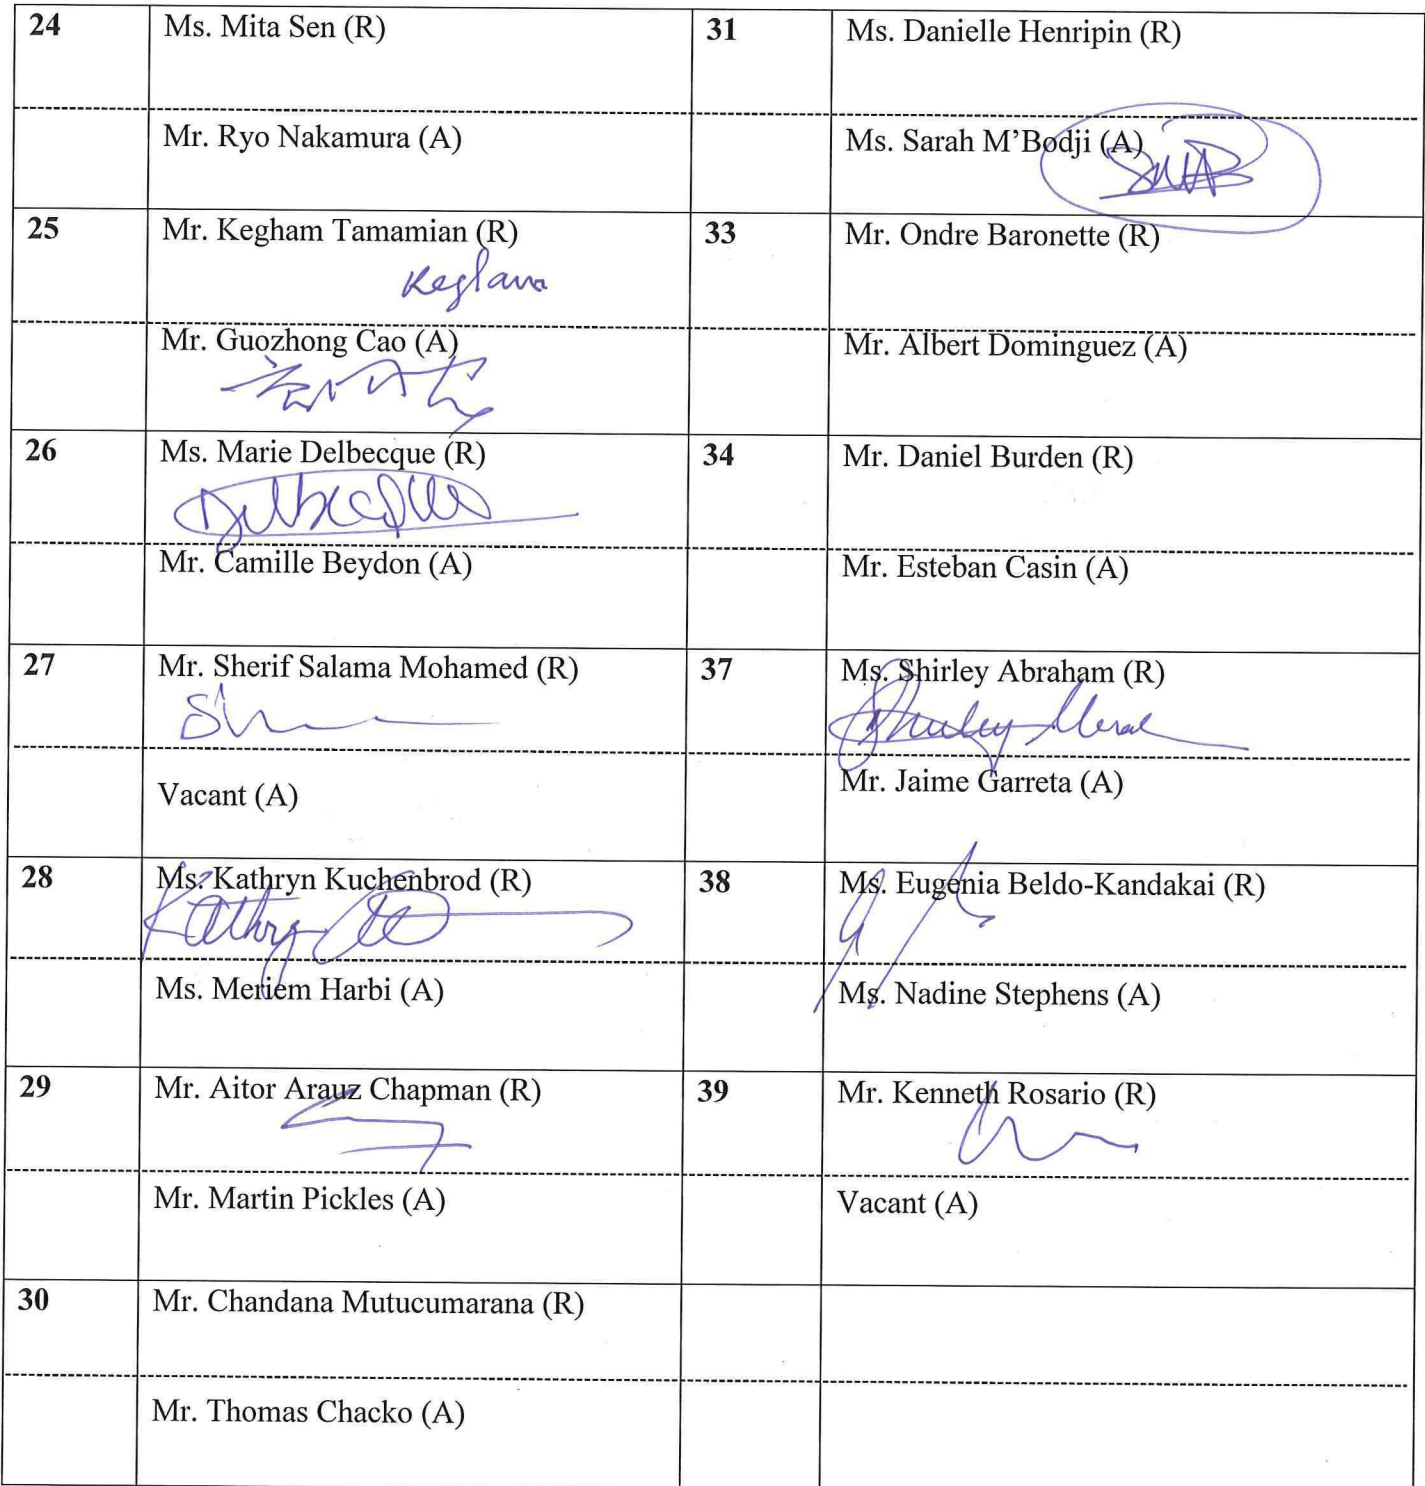 24 Ms. Mita Sen (R) 31 Ms. Danielle Henripin (R)
Mr. Ryo Nakamura (A) Ms. Sarah M'Bodji (A)
25 Mr. Kegham Tamamian (R) 33 Mr. Ondre Baronette (R)
Mr. Guozhong Cao (A) Mr. Albert Dominguez (A)
26 Ms. Marie Delbecque (R) 34 Mr. Daniel Burden (R)
Mr. Camille Beydon (A) Mr. Esteban Casin (A)
27 Mr. Sherif Salama Mohamed (R) 37 Ms. Shirley Abraham (R)
Vacant (A) Mr. Jaime Garreta (A)
28 Ms. Kathryn Kuchenbrod (R) 38 Ms. Eugenia Beldo-Kandakai (R)
Ms. Meriem Harbi (A) Ms. Nadine Stephens (A)
29 Mr. Aitor Arauz Chapman (R) 39 Mr. Kenneth Rosario (R)
Mr. Martin Pickles (A) Vacant (A)
30 Mr. Chandana Mutucumarana (R)
Mr. Thomas Chacko (A)